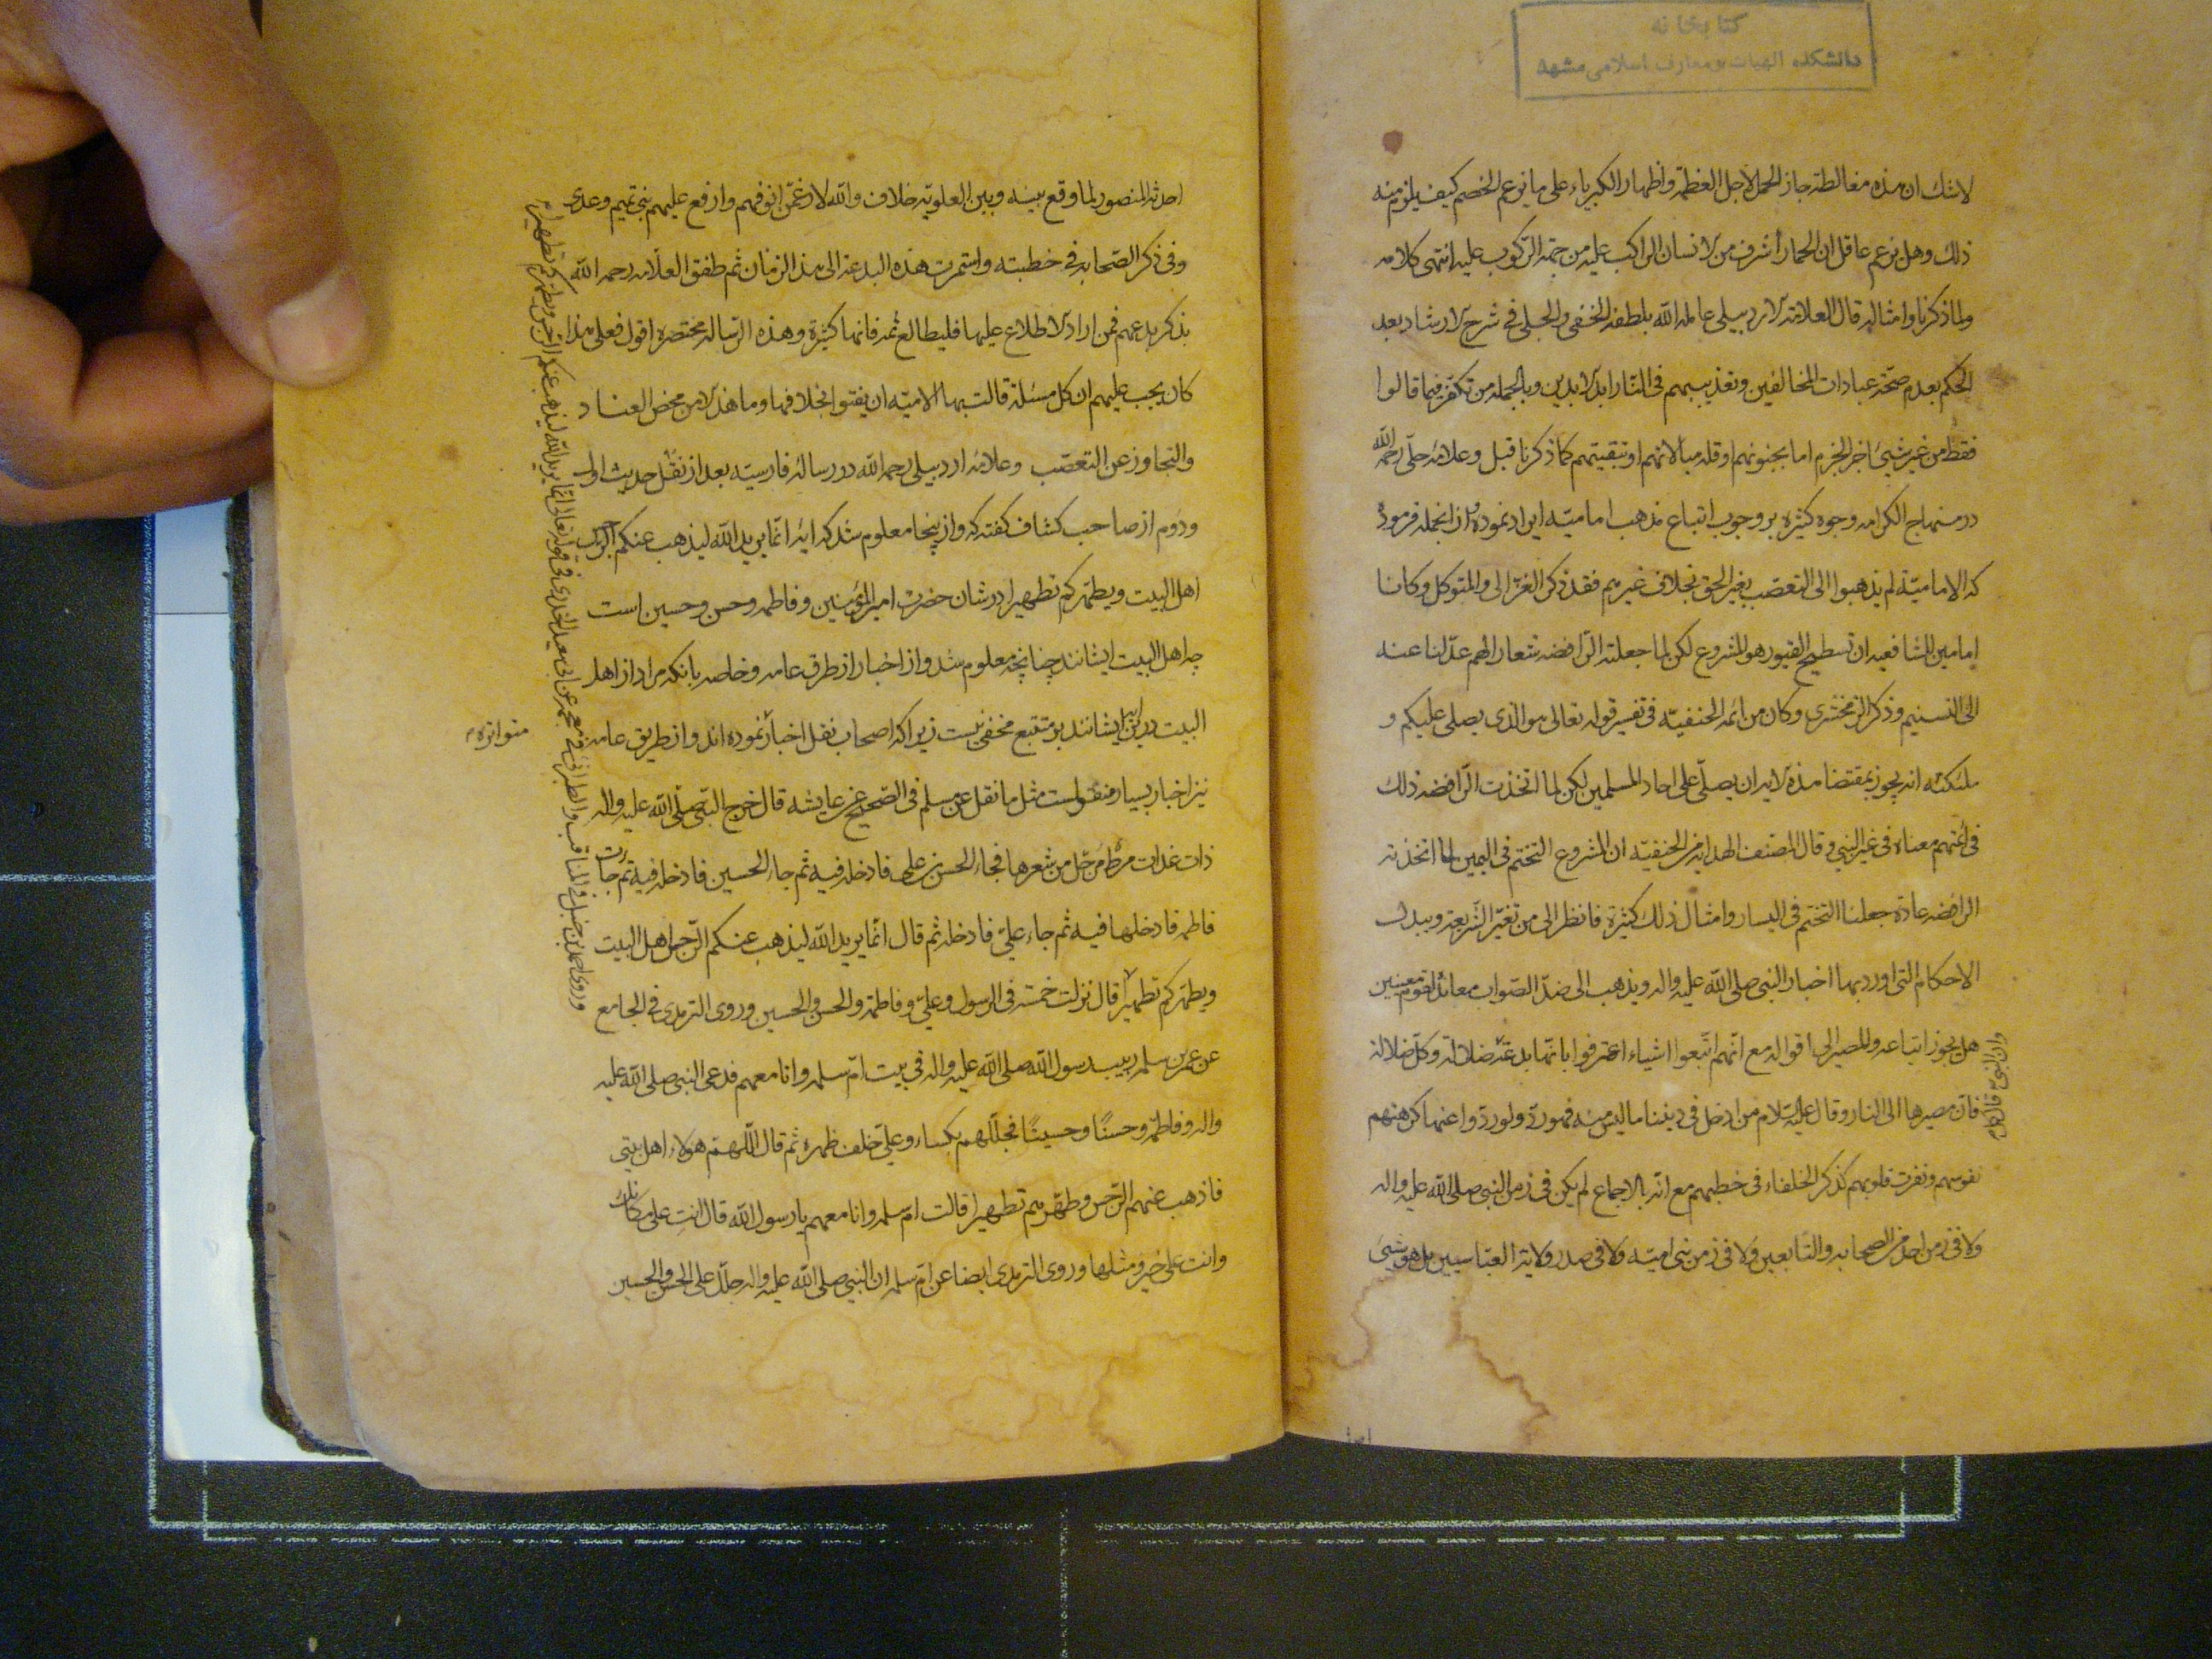 كتابخانه
دانشكده الهيات و معارف اسلامى مشهد
لاشك ان هذه مغالطة جاز الحمل لاجل العظمة واظهار الكبرياء على ما يزعم الخصم كيف يلزم منه
ذلك وهل يزعم عاقل ان الحمار أشرف من الانسان الراكب عليه من جهة الركوب عليه انتهى كلامه
ولما ذكرنا وامثاله قال العلامة الاردبيلى عامله الله بلطفه الخفى والجلى فى شرح الارشاد بعد
الحكم بعدم صحة عبادات المخالفين وتعذيبهم فى النار ابد الابدين وبالجملة من تكفر فيما قالوا
فقط من غير شىء اخر الجزم اما بجنونهم او قلة مبالاتهم او تقيتهم كما ذكرنا قبل وعلامه حلّى رحمه الله
در منهاج الكرامه وجوه كثيره بر وجوب اتباع مذهب اماميّه ايراد نموده از انجمله فرموده
كه الاماميّة لم يذهبوا الى التعصّب بغير الحق بخلاف غيرهم فقد ذكر الغزّالى والمتوكل وكانا
امامين للشافعيه ان تسطيح القبور هو المشروع لكن لما جعلته الرّافضه شعارا لهم عدّلنا عنه
الى التسنيم وذكر الزمخشرى وكان من ائمة الحنفيّه فى تفسير قوله تعالى هو الذى يصلى عليكم و
ملئكته انه يجوز بمقتضا هذه الايه ان يصلّى على احاد المسلمين لكن لما اتخذت الرّافضه ذلك
فى أئمتهم معناه فى غير النبي وقال المصنف الهدايه من الحنفيّه ان المشروع التختم فى اليمين لما اتخذته
الرافضه عادة جعلنا التختم فى اليسار وامثال ذلك كثيرة فانظر الى من تغيّر الشريعة ويبدل
الاحكام التى اورد بها اخبار النبى صلى الله عليه واله ويذهب الى ضدّ الصّواب معاندا لقوم معينين
هل يجوز اتباعه والمصير الى اقواله مع انّهم اتّبعوا اشياء اعترفوا بانّها بدعة ضلالة وكلّ ضلالة
وان النبى ص قال كل
فان مصيرها الى النار وقال عليه السّلام من ادخل فى ديننا ما ليس منه فهو ردّ ولو ردّوا عنها كرهتهم
نفوسهم ونفرت قلوبهم كذكر الخلفاء فى خطبهم مع انّه بالاجماع لم يكن فى زمن النبى صلى الله عليه واله
ولا فى زمن احد من الصحابه والتّابعين ولا فى زمن بنى اميّه ولا فى صدر ولاية العبّاسيين بل هو شىء
احدثه المنصور لما وقع بينه وبين العلويّه خلاف والله لارغمنّ انوفهم وارفع عليهم بنى تيم وعدى
وفى ذكر الصّحابه فى خطبته واستمرت هذه البدعة الى هذا الزمان ثم طفق العلّامه رحمه الله
بذكر بدعهم فمن اراد الاطلاع عليها فليطالع ثمه فانها كثيرة وهذه الرّساله مختصره اقول فعلى هذا
كان يجب عليهم ان كل مسئلة قالت بها الاماميّه ان يفتوا بخلافها وما هذا الا من محض العناد
والتجاوز عن التعصّب وعلامه اردبيلى رحمه الله در رسالهٔ فارسيّه بعد از نقل حديث اول
ودوم از صاحب كشاف كفته كه واز اينجا معلوم شد كه ايه انّما يريد الله ليذهب عنكم الرجس
اهل البيت ويطهّركم تطهيرا در شان حضرت امير المؤمنين وفاطمه وحسن وحسين است
چه اهل البيت ايشانند چنانچه معلوم شد واز اخبار از طرق عامه وخاصه بانكه مراد از اهل
البيت درين ايشانند بر متتبع مخفى نيست زيرا كه اصحاب نقل اخبار نموده اند واز طريق عامه
متواتره
نيز اخبار بسيار منقولست مثل ما نقل عن مسلم فى الصّحيح عن عايشه قال خرج النّبى صلى الله عليه واله
ذات غدات مرط مرحّل من شعرها فجاء الحسن بن على فادخله فيه ثم جاء الحسين فادخله فيه ثم جائت
فاطمه فادخلها فيه ثم جاء علىّ فادخله ثم قال انّما يريد الله ليذهب عنكم الرّجس اهل البيت
ويطهّركم تطهيرا قال نزلت خمسة فى الرسول وعلىّ وفاطمة والحسن والحسين وروى الترمذى فى الجامع
عن عمر بن سلمه ربيب رسول الله صلى الله عليه واله فى بيت امّ سلمه وانا معهم فدعى النبى صلى الله عليه
واله وفاطمة وحسنًا وحسينًا فجلّلهم بكساء وعلىّ خلف ظهره ثم قال اللّهم هؤلاء اهل بيتى
فاذهب عنهم الرّجس وطهّرهم تطهيرا قالت امّ سلمه وانا معهم يا رسول الله قال انتِ على مكانك
وانت على خير ومثلها وروى الترمذى ايضا عن امّ سلمه ان النبى صلى الله عليه واله جلّل على الحسن والحسين
وروى احمد بن حنبل فى المناقب والطبرانى فى معجمه عن ابى سعيد الخدرى فى قوله تعالى انّما يريد الله ليذهب عنكم الرجس ويطهركم تطهيرا